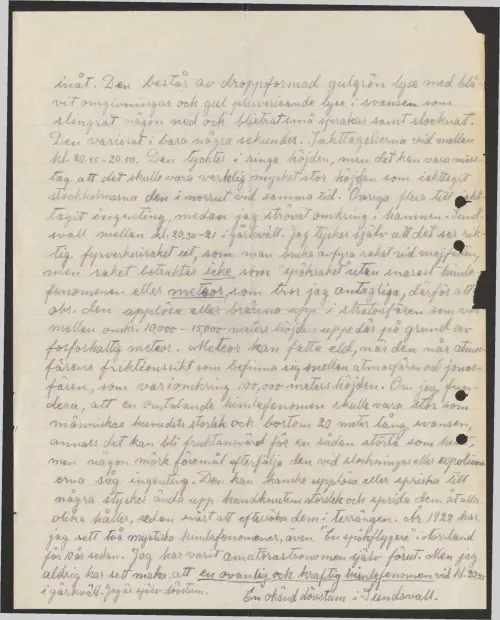 inåt. Den består av droppformad gulgrön lyse med blå-
vit omgivningar och gul pulveriserande lyse i svansen som
slingrat någon ned och blixtrat små sprakar samt slocknat.
Den varierat i bara några sekunder. Iakttagelserna vid mellan
kl. 20.45-20.50. Den tycktes i ringa höjden, men det kan vara miss-
tag, att det skulle vara verklig mycket stor höjden som iakttagit
stockholmarna den i morrut vid samma tid. Övriga flera till iakt-
tagit ingenting, medan jag strövat omkring i hamnen i Sund-
svall mellan kl. 20,30-21 i gårkväll. Jag tycker själv att det ser rik-
tig fyrverkeriraket ut, som man bruka avfyra raket vid
men raket betraktas icke som spökraket utan snarast himla-
fenomenen eller meteor, som tror jag antagliga, därför att
obs. den upplösa eller bränna upp i stratosfären som var
mellan omkr. 10,000 - 15000 meters höjden uppe där på grund av
fosforhaltig meteor. Meteor kan fatta eld, när den når atmos-
färens friktionssikt som befinna sig mellan atmosfären och jonos-
fären, som var omkring 100,000 meters höjden. Om jag fun-
dera, att en omtalande himlafenomen skulle vara stor som
människas huvudets storlek och bortom 20 meter lång svansen,
annars det kan bli fruktansvärd för en sådan storta som helst,
men någon mörk föremål efterfölja den vid slockningar eller explosion-
erna såg ingenting. Den kan kanske upplösa eller spricka till
några stycket ända upp handknuten storlek och sprida dem åt alla
olika håller, sedan svårt att eftersöka dem i terrängen. År 1928 har
jag sett två mystiska himlafenomener, även "En spökflygare" i Norrland
för 10 år sedan. Jag har varit amatörastronomen själv förut. Men jag
aldrig har sett maka, att en ovanlig och kraftig himlafenomen vid kl. 20
i gårkväll. Jag är själv dövstum. En okänd dövstum i Sundsvall.